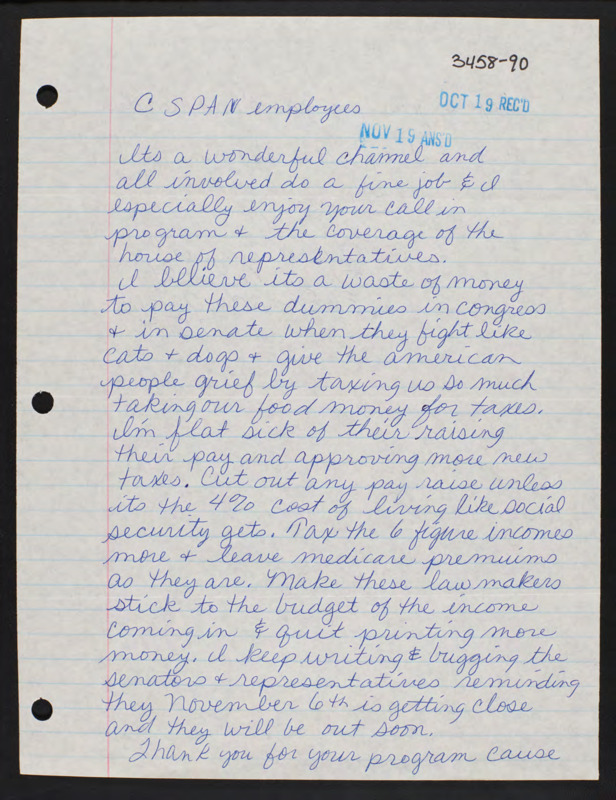 3458-90
OCT 19 REC'D
C SPAN employees
NOV 19 ANS'D
Its a wonderful channel and
all involved do a fine job & I
especially enjoy your call in
program + the coverage of the
house of representatives.
I believe its a waste of money
to pay these dummies in congress
+ in senate when they fight like
cats + dogs + give the american
people grief by taxing us so much
taking our food money for taxes.
I'm flat sick of their raising
their pay and approving more new
taxes. Cut out any pay raise unless
its the 4% cost of living like social
security gets. Tax the 6 figure incomes
more + leave medicare premuims
as they are. Make these law makers
stick to the budget of the income
coming in & quit printing more
money. I keep writing & bugging the
senators + representatives reminding
they November 6th is getting close
and they will be out soon.
Thank you for your program cause